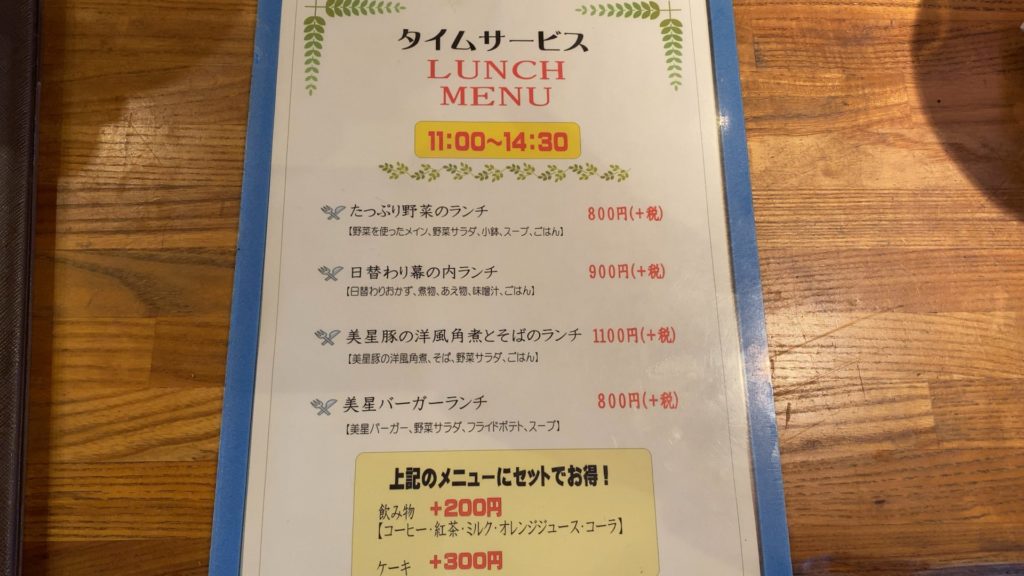 タイムサービス
LUNCH
MENU
11:00～14:30
たっぷり野菜のランチ 800円(+税)
【野菜を使ったメイン、野菜サラダ、小鉢、スープ、ごはん】
日替わり幕の内ランチ 900円(+税)
【日替わりおかず、煮物、あえ物、味噌汁、ごはん】
美星豚の洋風角煮とそばのランチ 1100円(+税)
【美星豚の洋風角煮、そば、野菜サラダ、ごはん】
美星バーガーランチ 800円(+税)
【美星バーガー、野菜サラダ、フライドポテト、スープ】
上記のメニューにセットでお得！
飲み物 +200円
【コーヒー・紅茶・ミルク・オレンジジュース・コーラ】
ケーキ +300円